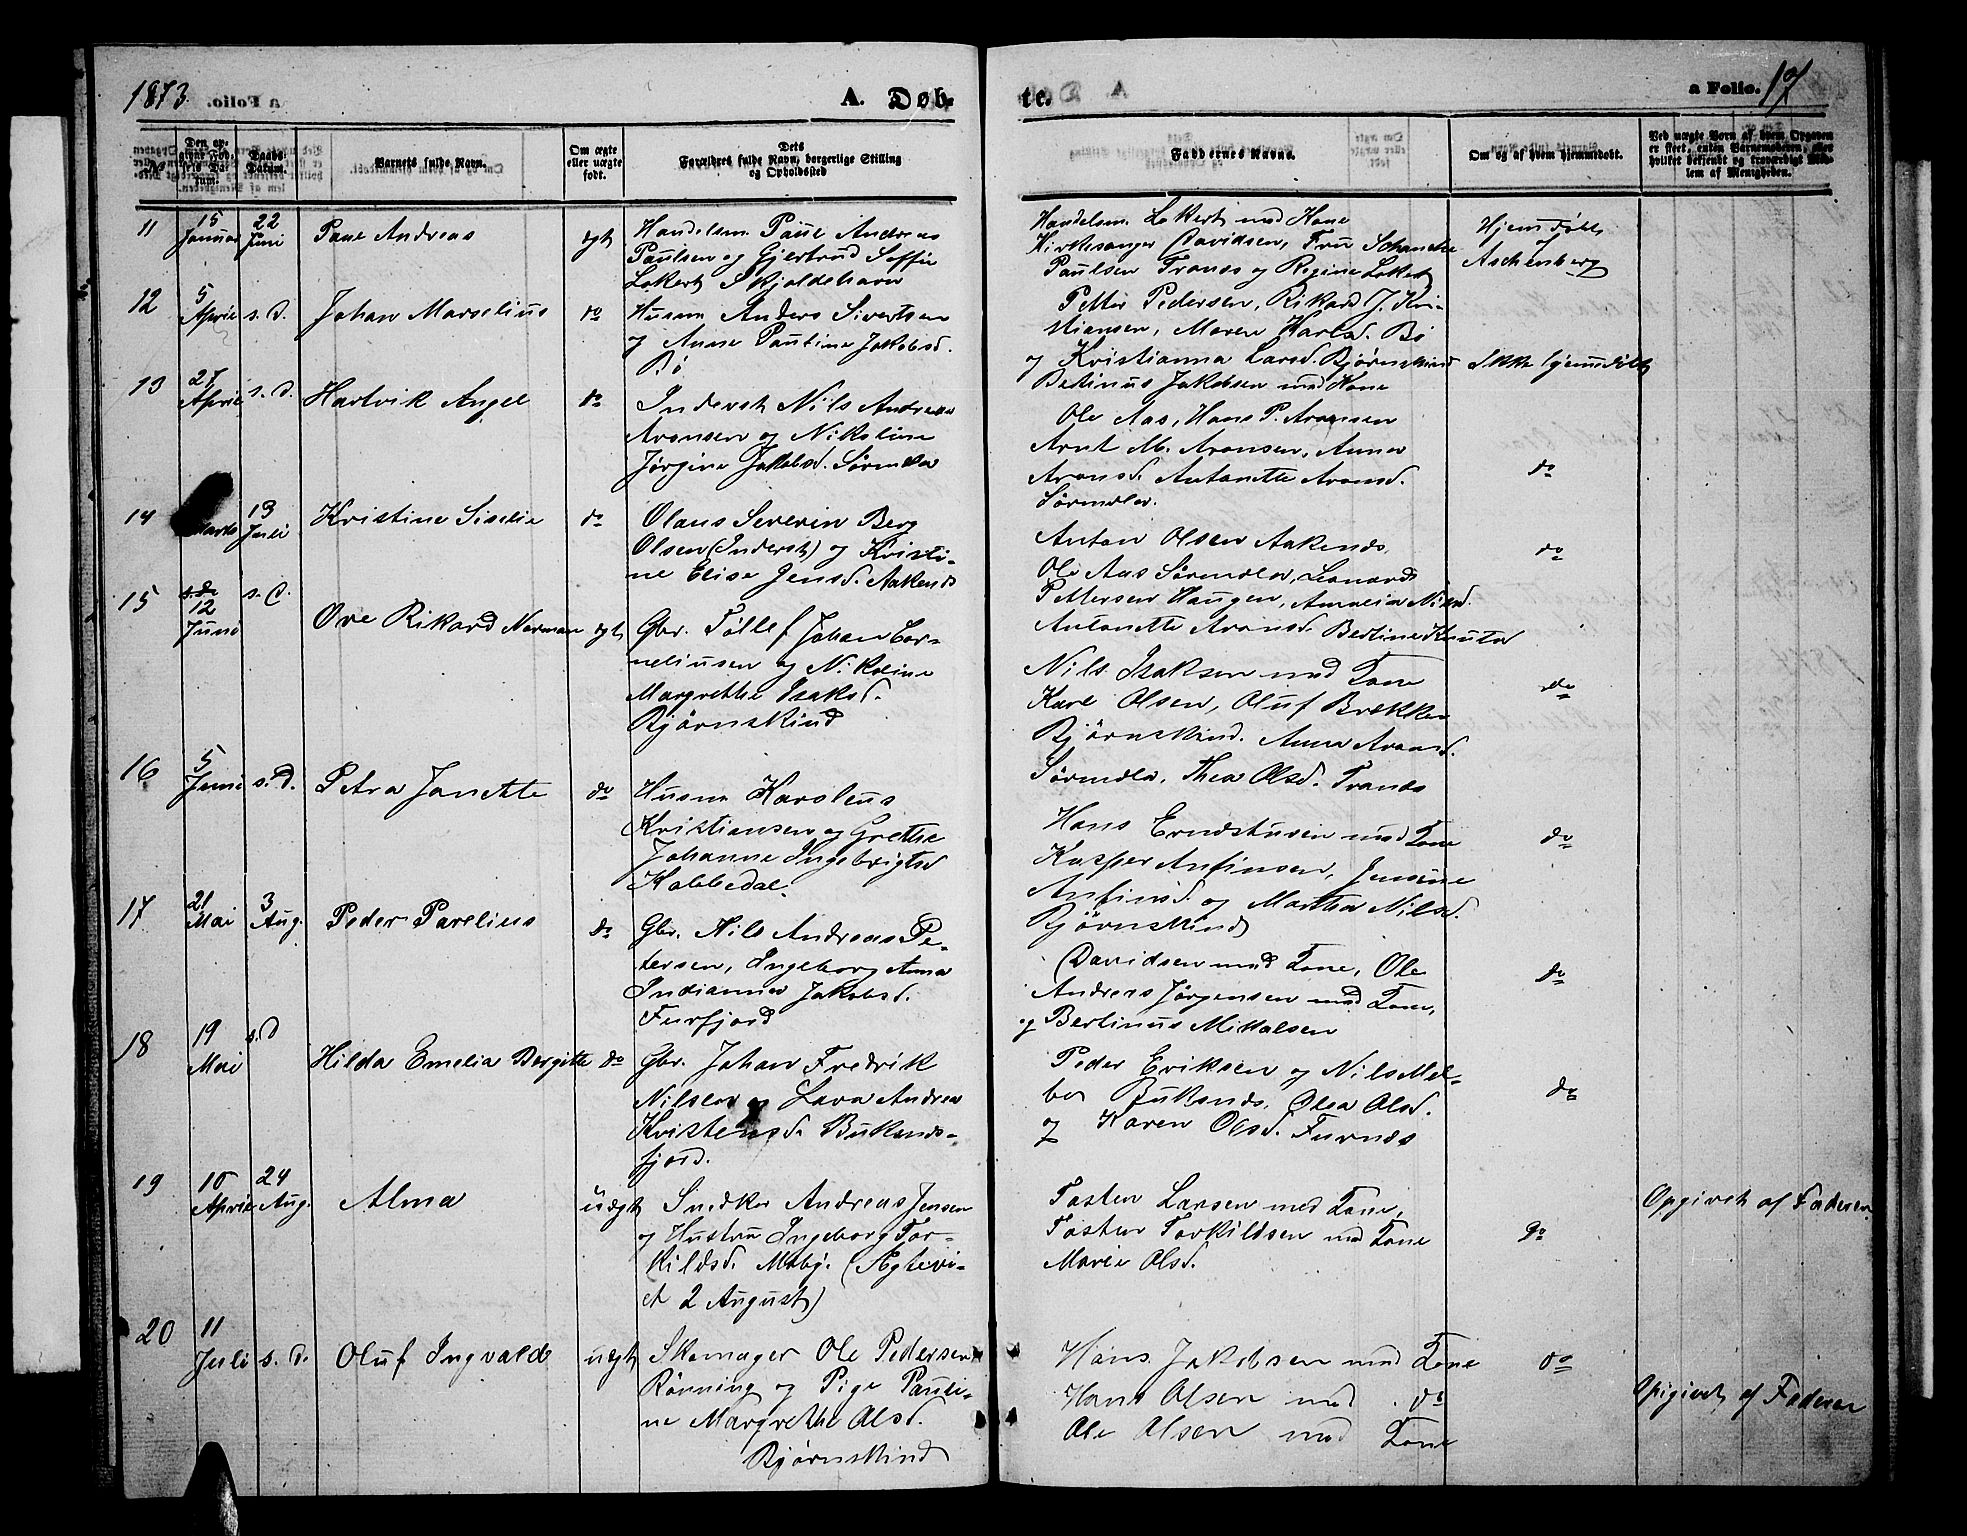 1873.
A. Døb-
te.
a Folio. 17
No
Den op-
givne Fød-
sels Da-
tum.
Daabs-
Datum.
Barnets fulde Navn.
Om ægte
eller uægte
født.
Dets
Forældres fulde Navn, borgerlige Stilling
og Opholdssted
Faddernes Navne.
Om og af hvem hjemmedøbt.
Ved uægte Børn af hvem Opgaven
er skeet, enten Barnemoderen, eller
hvilket bekjendt og troværdigt Med-
lem af Menigheden.
11
15
Januar
22
Juni
Paul Andreas
ægte
Handelsm. Paul Andreas
Paulsen og Gjertrud Soffie
Lokert Skjoldehavn
Handelsm. Lokert med Kone
Kirkesanger Davidsen, Fru Schancke
Paulsen Tranes og Regine Lokert
Hjemdøbt
af
Aschenberg
12
5
April
s. D.
Johan Marselius
do
Husm Anders Sivertsen
og Anne Pauline Jakobsd.
Bø
Petter Pedersen, Rikard J. Kri-
stiansen, Maren Karlsd. Bø
og Kristianna Larsd. Bjørnskind
Betinus Jakobsen med Kone
Ikke hjemdøbt
13
27
April
s. D.
Hartvik Angel
do
Inderst Nils Andreas
Aronsen og Nikoline
Jørgine Jakobsd. Sørmela
Ole Aas, Hans P. Aronsen
Arnt M. Aronsen, Anna
Aronsd. Antonette Aronsd.
Sørmela.
do
14
Marts
13
Juli
Kristine Siselie
do
Olaus Severin Berg
Olsen (Inderst) og Kristi-
ne Elise Jensd. Aaknes
Anton Olsen Aaknes,
Ole Aas Sørmela, Leonard
Pettersen Haugen, Amalia Nilsd.
Antonette Aronsd. Bertine Knutsd
do
15
12
Juni
s. D.
Ove Rikard Norman
ægte
Gbr. Tøllef Johan Cor-
neliusen og Nikoline
Margrethe Isaksd.
Bjørnskind
Nils Isaksen med Kone
Karl Olsen, Oluf Brækken
Bjørnskind. Anna Aronsd.
Sørmela, Thea Olsd. Tranes
do
16
5
Juni
s. D.
Petra Janette
do
Husm Karolius
Kristiansen og Grethe
Johanne Ingebrigtsd
Kobbedal.
Hans Erndstusen med Kone
Kasper Anfinsen, Jensine
Anfinsd. og Martha Nilsd.
Bjørnskind
do
17
21
Mai
3
Aug.
Peder Parelius
do
Gbr. Nils Andreas Pe-
tersen, Ingeborg Anna
Indianna Jakobsd.
Furfjord
Davidsen med Kone, Ole
Andreas Jørgensen med Kone,
og Bertinus Mikalsen
do
18
19
Mai
s. D
Hilda Emelia Bergitte
do
Gbr. Johan Fredrik
Nilsen og Lava Andrea
Kristensd. Buknes-
fjord.
Peder Eriksen og Nils Mel-
bo Buknes, Olea Olsd.
og Karen Olsd. Furnes
do
19
10
April
24
Aug.
Alma
uægte
Snedker Andreas Jensen
og Hustru Ingeborg Tor-
kildsd. Melbj. (Ægtevi-
et 2 August)
Tosten Larsen med Kone,
Tosten Torkildsen med Kone
Marie Olsd.
do
Opgivet af Faderen
20
11
Juli
s. D.
Oluf Ingvald
uægte
Skomager Ole Pedersen
Rønning og Pige Pauli-
ne Margrethe Olsd.
Bjørnskind
Hans Jakobsen med Kone
Hans Olsen med do
Ole Olsen med Kone
do
Opgivet af Faderen